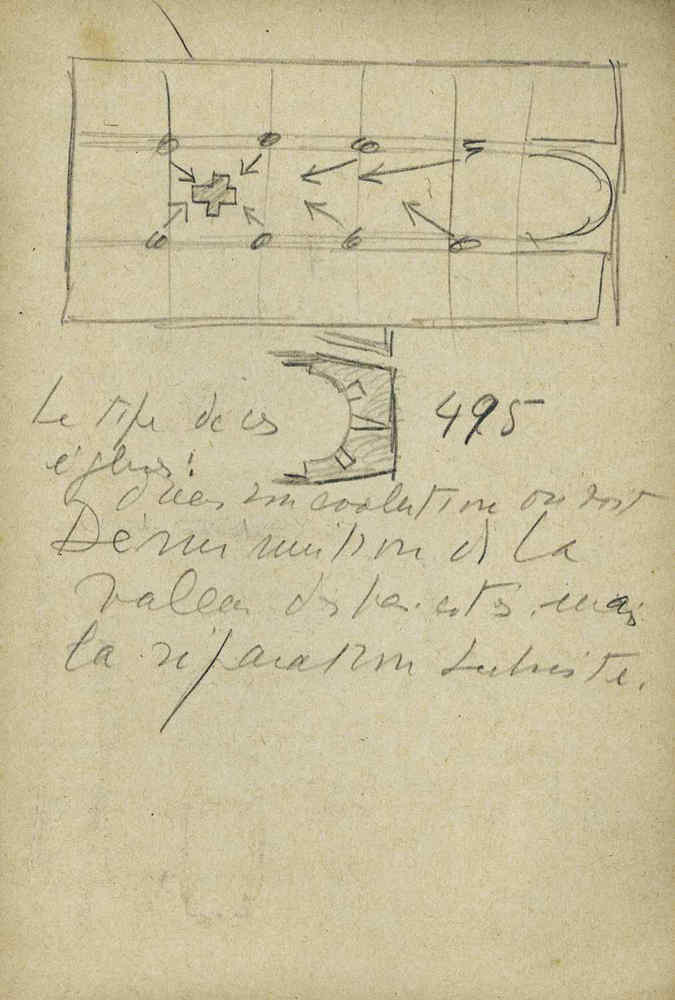 495
Le type de ces
églises:
dans son évolution on voit
Deminution de la
valeur des bas-cotés, mais
la séparation subsiste.